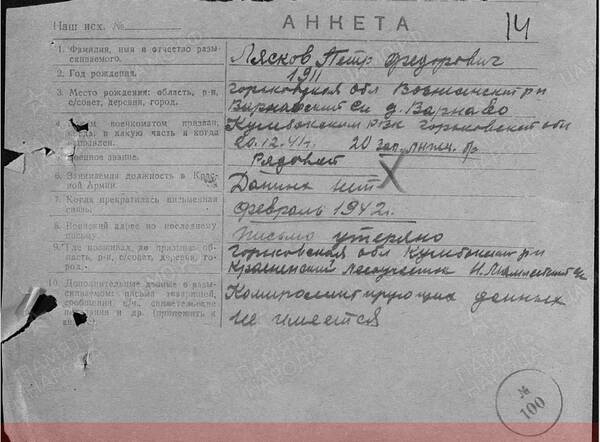 Наш исх. №
АНКЕТА
14
1. Фамилия, имя и отчество разыскиваемого.
Лясков Петр Федорович
2. Год рождения.
1911
3. Место рождения: область, р-н, с/совет, деревня, город.
Горьковская обл Вознесенск рн
Варнавский с/с д. Варнаво
военкоматом призван, когда, в какую часть и когда
Кулебакским РВК Горьковской обл
20.12.41г. 20 зап. лыжн. бр
военное звание.
Рядовой
6. Занимаемая должность в Красной Армии.
Данных нет
7. Когда прекратилась письменная связь.
февраль 1942г.
8. Воинский адрес по последнему письму.
Письмо утеряно
9. Где проживал до призыва: область, р-н, с/совет, деревня, город.
Горьковская обл Кулебакский рн
лесоучасток
10. Дополнительные данные о разыскиваемом: письма товарищей, сообщения в/ч.
и др. (приложить к анкете)
Компрометирующих данных
не имеется
№
100
ПАМЯТЬ НАРОДА